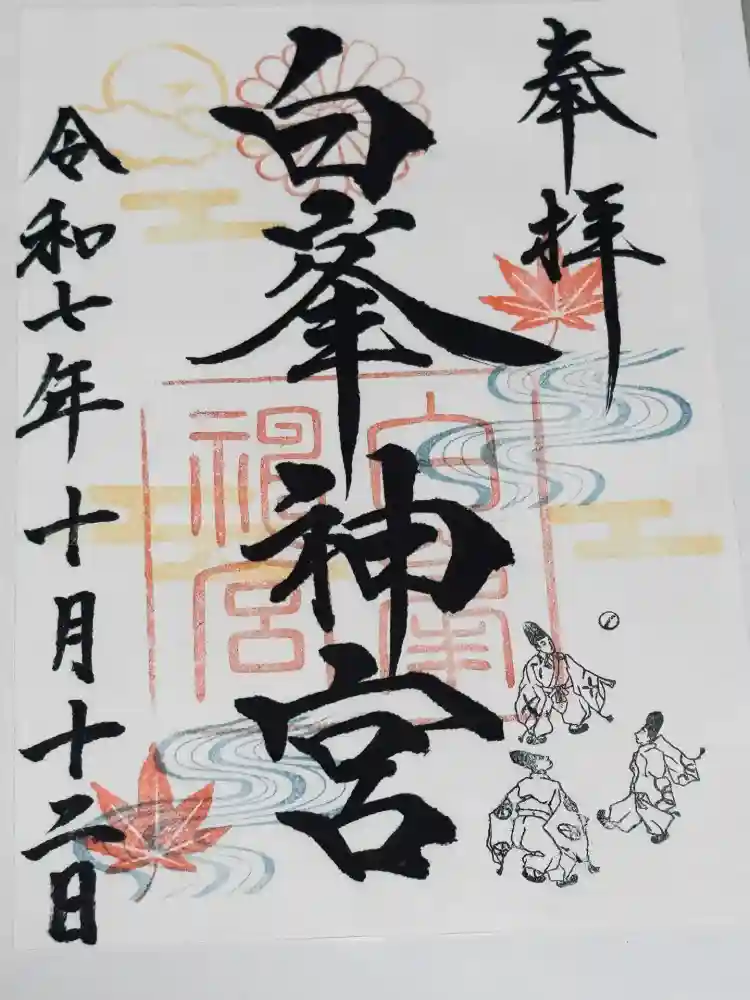 奉拝
白峯神宮
令和七年十月十二日
白峯神宮